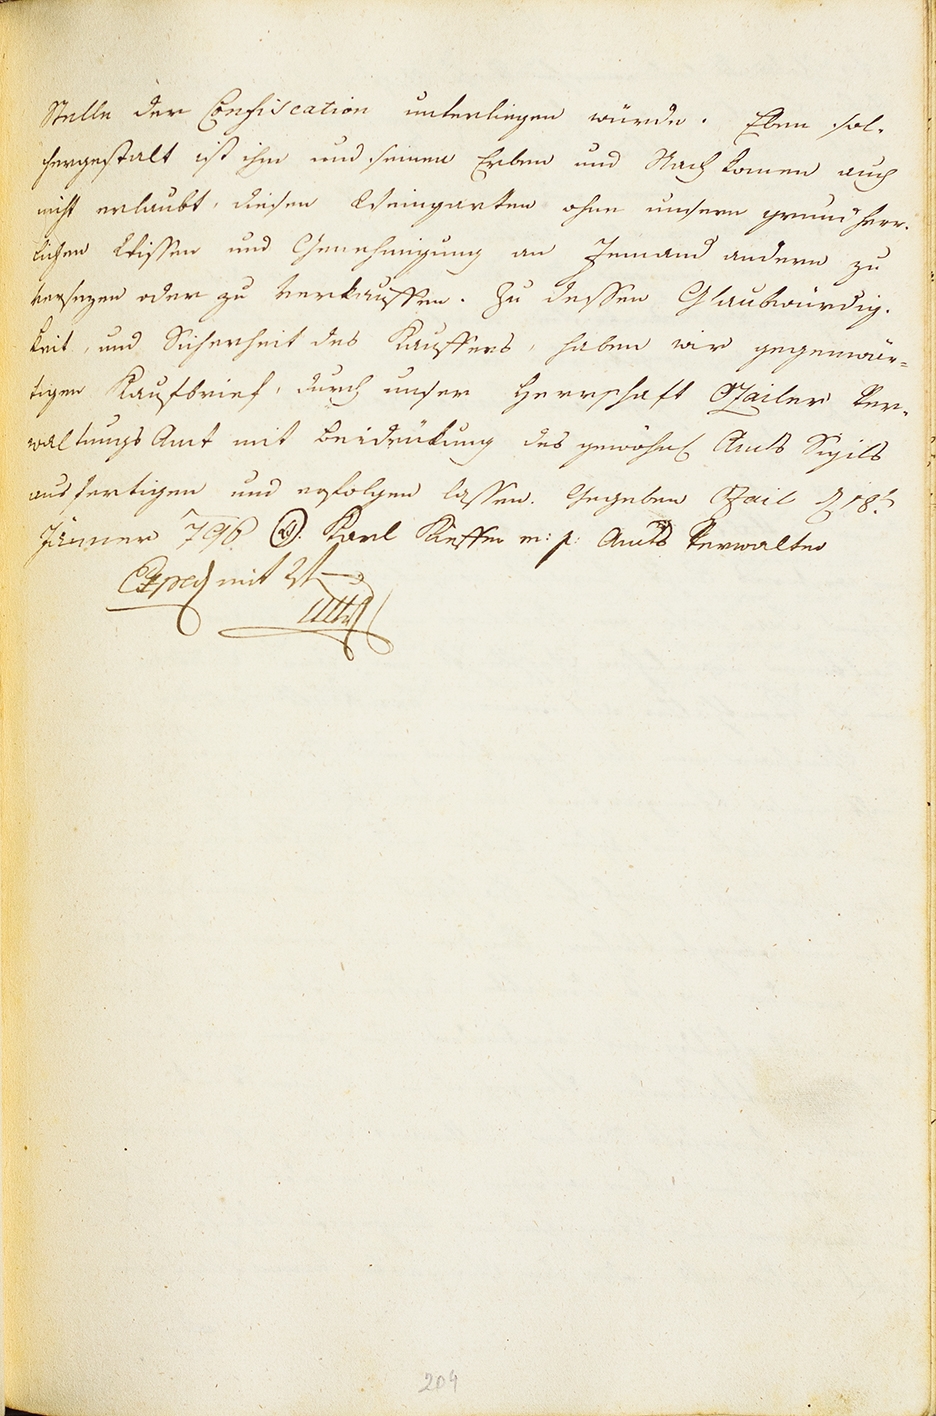 Stelle der Confiscation unterliegen würde. Eben sol-
chergestalt ist ihm und seinen Erben und Nachkomen auch
nicht erlaubt, diesen Weingarten ohne unsern grundherr-
lichen Wissen und Genehmigung an Jemand andern zu
versezen oder zu verkauffen. Zu dessen Glaubwürdig-
keit, und Sicherheit des Kauffers, haben wir gegenwär-
tigen Kaufbrief, durch unser Herrschaft Zailer Ver-
waltungs Amt mit Beidrükung des gewöhnl Amts Sigils
ausfertigen und erfolgen lassen. Gegeben Zail d 18t
Jänner 796 Karl Kieffer m: p: Amts Verwalter
mit
204